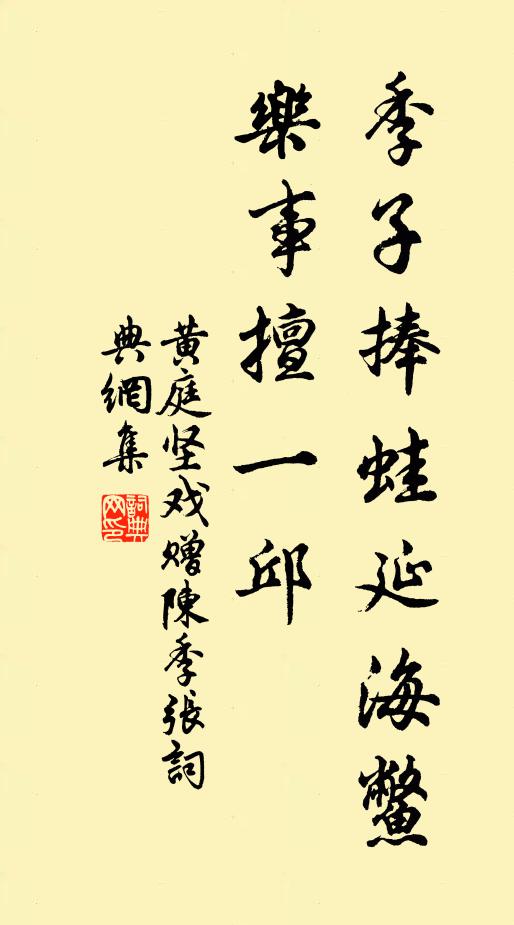 季子捧蛙延海鱉
樂事擅一邱
黄庭坚戏赠陳季張詞
典網集
詞典网印